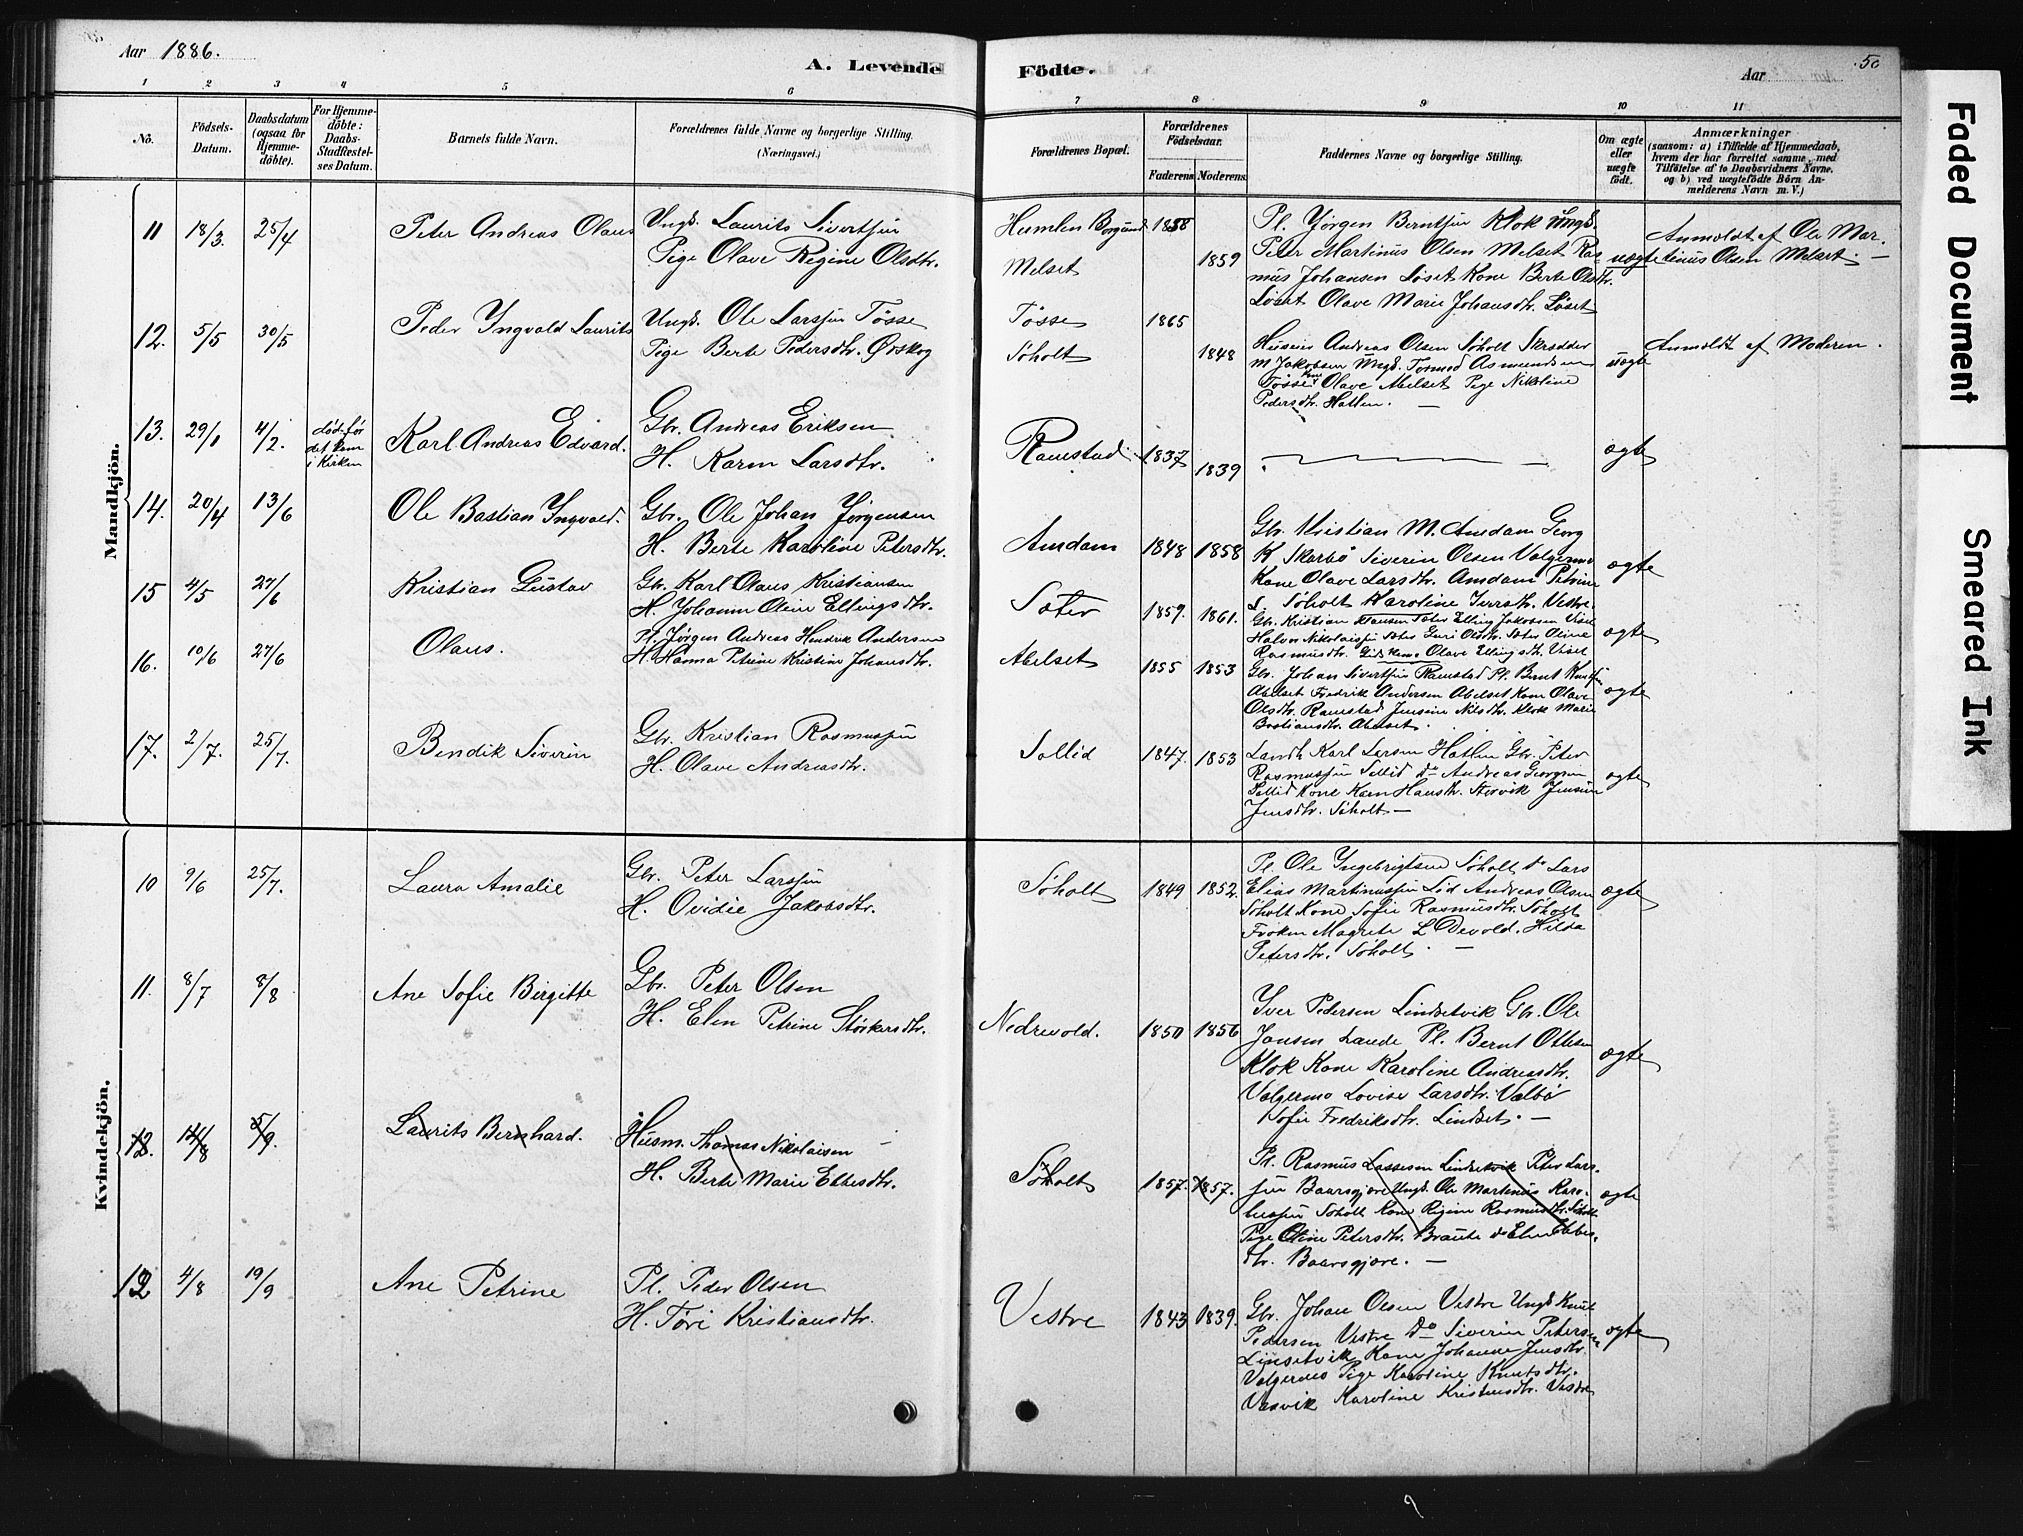 Aar 1886.
A. Levende Födte.
Aar
50
1 2 3 4 5 6 7 8 9 10 11
No.
Födsels-Datum.
Daabsdatum (ogsaa for Hjemme-döbte).
For Hjemme-döbte: Daabs-Stadfæstel-ses Datum.
Barnets fulde Navn.
Forældrenes fulde Navne og borgerlige Stilling.
(Næringsvei.)
Forældrenes Bopæl.
Forældrenes Födselsaar.
Faderens Moderens
Faddernes Navne og borgerlige Stilling.
Om ægte eller uægte födt.
Anmærkninger
(saasom: a) i Tilfælde af Hjemmedaab, hvem der har forrettet samme, med Tilföielse af to Daabsvidners Navne, og b) ved uægtefödte Börn Anmelderens Navn m. V.)
Mandkjön.
11 18/3. 25/4 Peter Andreas Olaus
Ungk. Laurits Sivertsen
Pige Olave Regine Olsdtr.
Humlen Borgund 1858
Melset 1859
Pl. Jörgen Berntsen Klok Ungk.
Peter Martinus Olsen Melset Ras-
mus Johansen Löset Kone Berte Olsdtr.
Löset Olave Marie Johansdtr. Löset
uægte
Anmeldt af Ole Mar-
tinus Olsen Melset. —
12. 5/5 30/5 Peder Yngvald Laurits
Ungk. Ole Larsen Tösse
Pige Berte Pedersdtr. Ørskog
Tösse 1865
Söholt 1848
Husm Andreas Olsen Söholt Skrædder
M Jakobsen Ungk. Tormod Asmundsen
Tösse Kone Olave Abelset Pige Nikoline
Pedersdtr. Hatlen. —
uægte
Anmeldt af Moderen.
13. 29/1 4/2. död før det kom i Kirken
Karl Andreas Edvard.
Gbr. Andreas Eriksen
H. Karen Larsdtr.
Ramstad 1837 1839
ægte
14. 20/4 13/6 Ole Bastian Yngvald.
Gbr. Ole Johan Jörgensen
H. Berte Karoline Petersdtr.
Amdam 1848 1858
Gbr. Kristian M. Amdam Georg
K Skarbö Siverin Olsen Valgermo
Kone Olave Larsdtr. Amdam Petrine
L. Söholt Karoline Iversdtr. Vestre.
ægte
15 4/5 27/6 Kristian Gustav
Gbr. Karl Olaus Kristiansen
H. Johanne Oline Ellingsdtr.
Sæter 1859. 1861.
Gbr. Kristian Hansen Sæter Elling Jakobsen Viset
Halvor Nikolaisen Sæter Guri Olsdtr. Sæter Oline
Rasmusdtr. Kone Olave Ellingsdtr. Viset
ægte
16. 10/6 27/6 Olaus.
Pl. Jörgen Andreas Hendrik Andersen
H. Hanna Petrine Kristine Johansdtr.
Abelset 1855 1853
Gbr. Johan Sivertsen Ramstad Pl. Bernt Knutsen
Abelset Fredrik Andersen Abelset Kone Olave
Olsdtr. Ramstad Jensine Nilsdtr. Klok Marie
Bastiansdtr. Abelset.
ægte
17. 2/7. 25/7. Bendik Siverin
Gbr. Kristian Rasmussen
H. Olave Andreasdtr.
Sollid 1847. 1853
Landh Karl Larsen Hatlen Gbr. Peter
Rasmussen Sollid Do Andreas Georgsen
Sollid Kone Karen Hansdtr. Størvik Jensine
Jensdtr. Söholt —
ægte
Kvindekjön.
10 9/6 25/7. Laura Amalie
Gbr. Peter Larsen
H. Ovidie Jakobsdtr.
Söholt 1849 1852.
Pl. Ole Yngebrigtsen Söholt Do Lars
Elias Martinussen Lid Andreas Olsen
Söholt Kone Sofie Rasmusdtr. Söholt
Fröken Magrete L Devold. Hilda
Petersdtr. Söholt. —
ægte
11. 8/7 8/8 Ane Sofie Birgitte
Gbr. Peter Olsen
H. Elen Petrine Störkersdtr.
Nedrevold. 1850 1856
Iver Pedersen Lindsetvik Gbr. Ole
Jonsen Lande Pl. Bernt Ottesen
Klok Kone Karoline Andreasdtr.
Valgermo Lovise Larsdtr. Valbö
Sofie Fredriksdtr. Lindset. —
ægte
12. 14/8 5/9. Laurits Bernhard.
Husm. Thomas Nikolaisen
H. Berte Marie Ebbesdtr.
Söholt 1857. 1857.
Pl. Rasmus Lassesen Lindsetvik Peter Lars-
sen Baarsgjære Ungk. Ole Martinus Karo-
lussen Söholt Kone Regine Rasmusdtr. Söholt
Pige Oline Petersdtr. Braute do Elen Ebbes-
dtr. Baarsgjære. —
ægte
12 4/8 19/9 Ane Petrine
Pl. Peder Olsen
H. Töri Kristiansdtr.
Vestre 1843 1839.
Gbr. Johan Olsen Vestre Ungk Knut
Pedersen Vestre Do Siverin Petersen
Linsetvik Kone Johanne Jensdtr.
Valgermo Pige Karoline Knutsdtr.
Vasvik Karoline Kristensdtr. Vestre
ægte
Faded Document
Smeared Ink